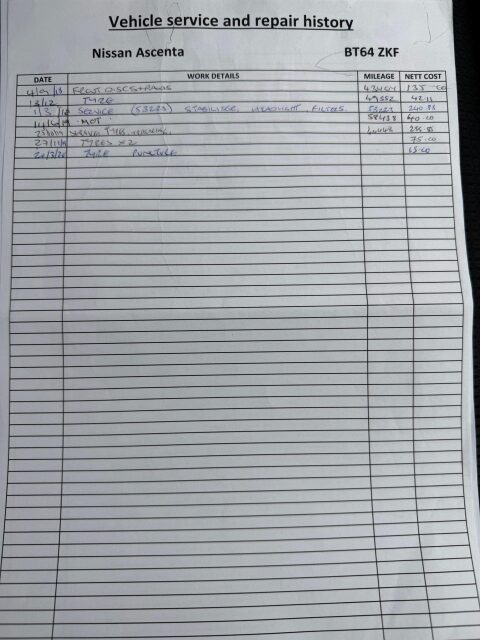 Vehicle service and repair history
Nissan Ascenta BT64 ZKF
DATE WORK DETAILS MILEAGE NETT COST
4/9/18 FRONT DISCS + PADS 135.00
13/12 TYRE 49352 42.11
1/3 SERVICE (53283) STABILISER, HEADLIGHT, FILTERS 240.88
MOT 58438 40.00
SERVICE, TYRES,
27/11/19 TYRES x2 75.00
20/3/20 TYRE PUNCTURE 15.00